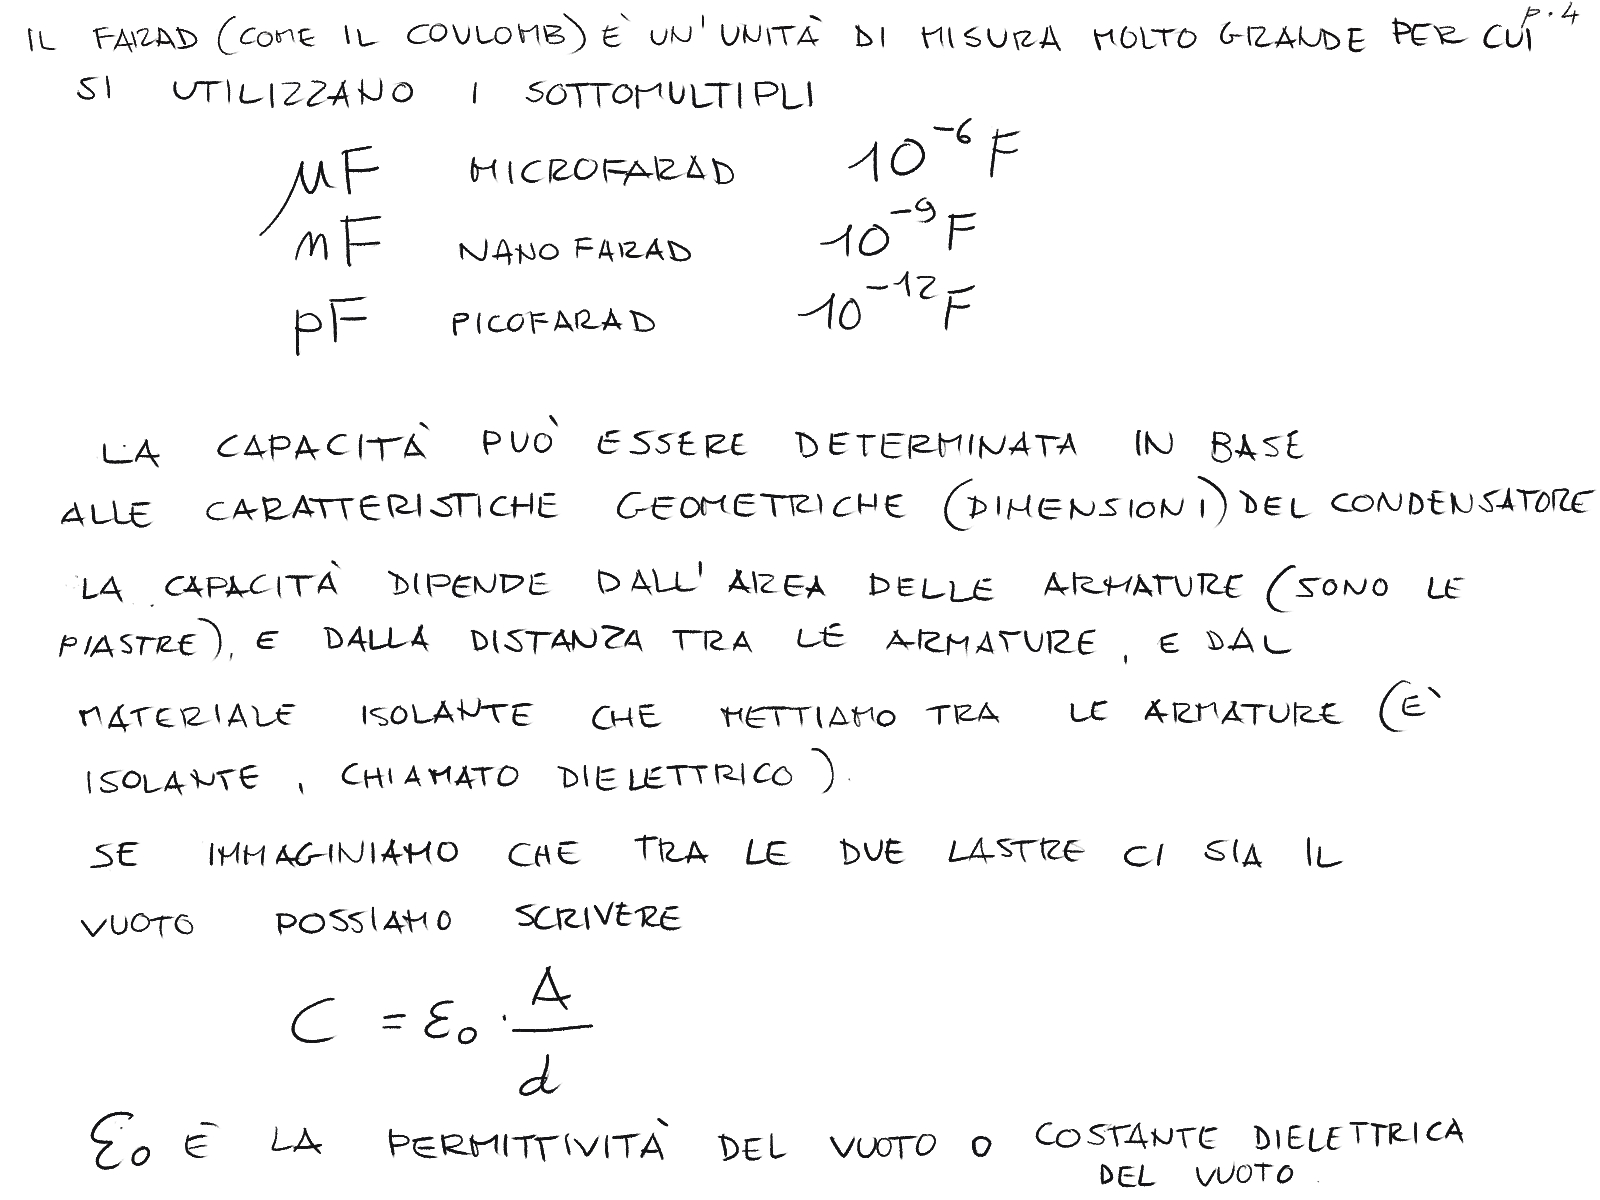 p. 4
IL FARAD (COME IL COULOMB) È UN'UNITÀ DI MISURA MOLTO GRANDE PER CUI
SI UTILIZZANO I SOTTOMULTIPLI
μF MICROFARAD 10⁻⁶ F
nF NANOFARAD 10⁻⁹ F
pF PICOFARAD 10⁻¹² F
LA CAPACITÀ PUÒ ESSERE DETERMINATA IN BASE
ALLE CARATTERISTICHE GEOMETRICHE (DIMENSIONI) DEL CONDENSATORE
LA CAPACITÀ DIPENDE DALL'AREA DELLE ARMATURE (SONO LE
PIASTRE), E DALLA DISTANZA TRA LE ARMATURE, E DAL
MATERIALE ISOLANTE CHE METTIAMO TRA LE ARMATURE (È
ISOLANTE, CHIAMATO DIELETTRICO).
SE IMMAGINIAMO CHE TRA LE DUE LASTRE CI SIA IL
VUOTO POSSIAMO SCRIVERE
C = ε₀ · A/d
ε₀ È LA PERMITTIVITÀ DEL VUOTO O COSTANTE DIELETTRICA
DEL VUOTO.